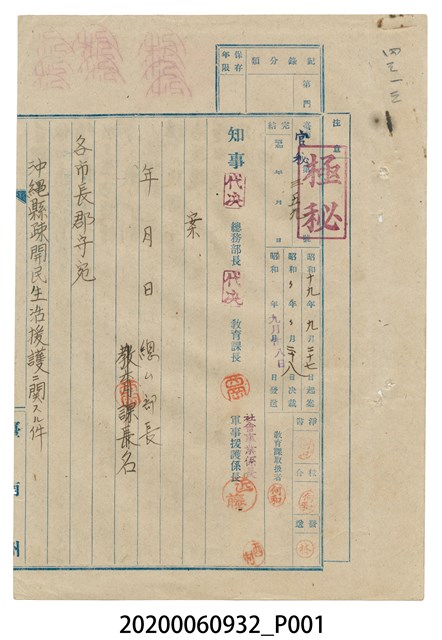 四三一三
注意
記錄分類
第 門
保存年限
極秘
官秘第二五九號
完結 昭和 年 月 日
昭和十九年九月二十七日起案
昭和 〃 年 〃 月二十八日決裁
昭和 年九月廿八日發送
淨書
校合
發送
知事 代決 總務部長 代決 教育課長
社會事業係長
軍事援護係長
教育課取扱者
案
年 月 日
總ム部長
教育課長名
各市長郡守宛
沖繩縣疎開民生活援護ニ関スル件
臺南州
20200060932_P001